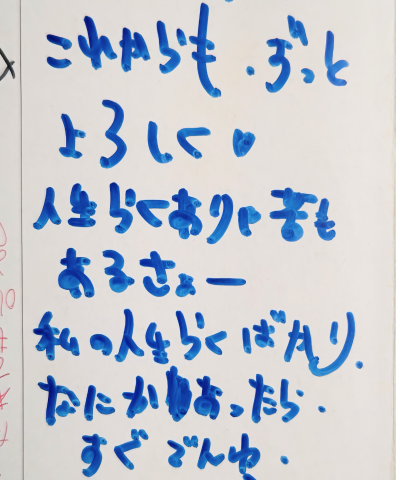 これからも、ずっと
よろしく♥
人生らくありゃ苦も
あるさぁー
私の人生らくばかり、
なにかあったら、
すぐでんわ、